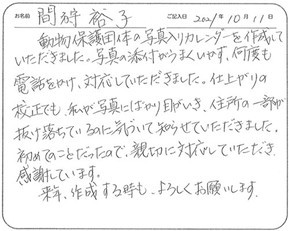 お名前 間狩 裕子 ご記入日 2021年10月11日
動物保護団体の写真入りカレンダーを作成して
いただきました。写真の添付がうまくいかず、何度も
電話をかけ、対応していただきました。仕上がりの
校正でも、私が写真にばかり目がいき、住所の一部が
抜け落ちているのに気づいて知らせていただきました。
初めてのことだったので、親切に対応していただき
感謝しています。
来年、作成する時も、よろしくお願いします。